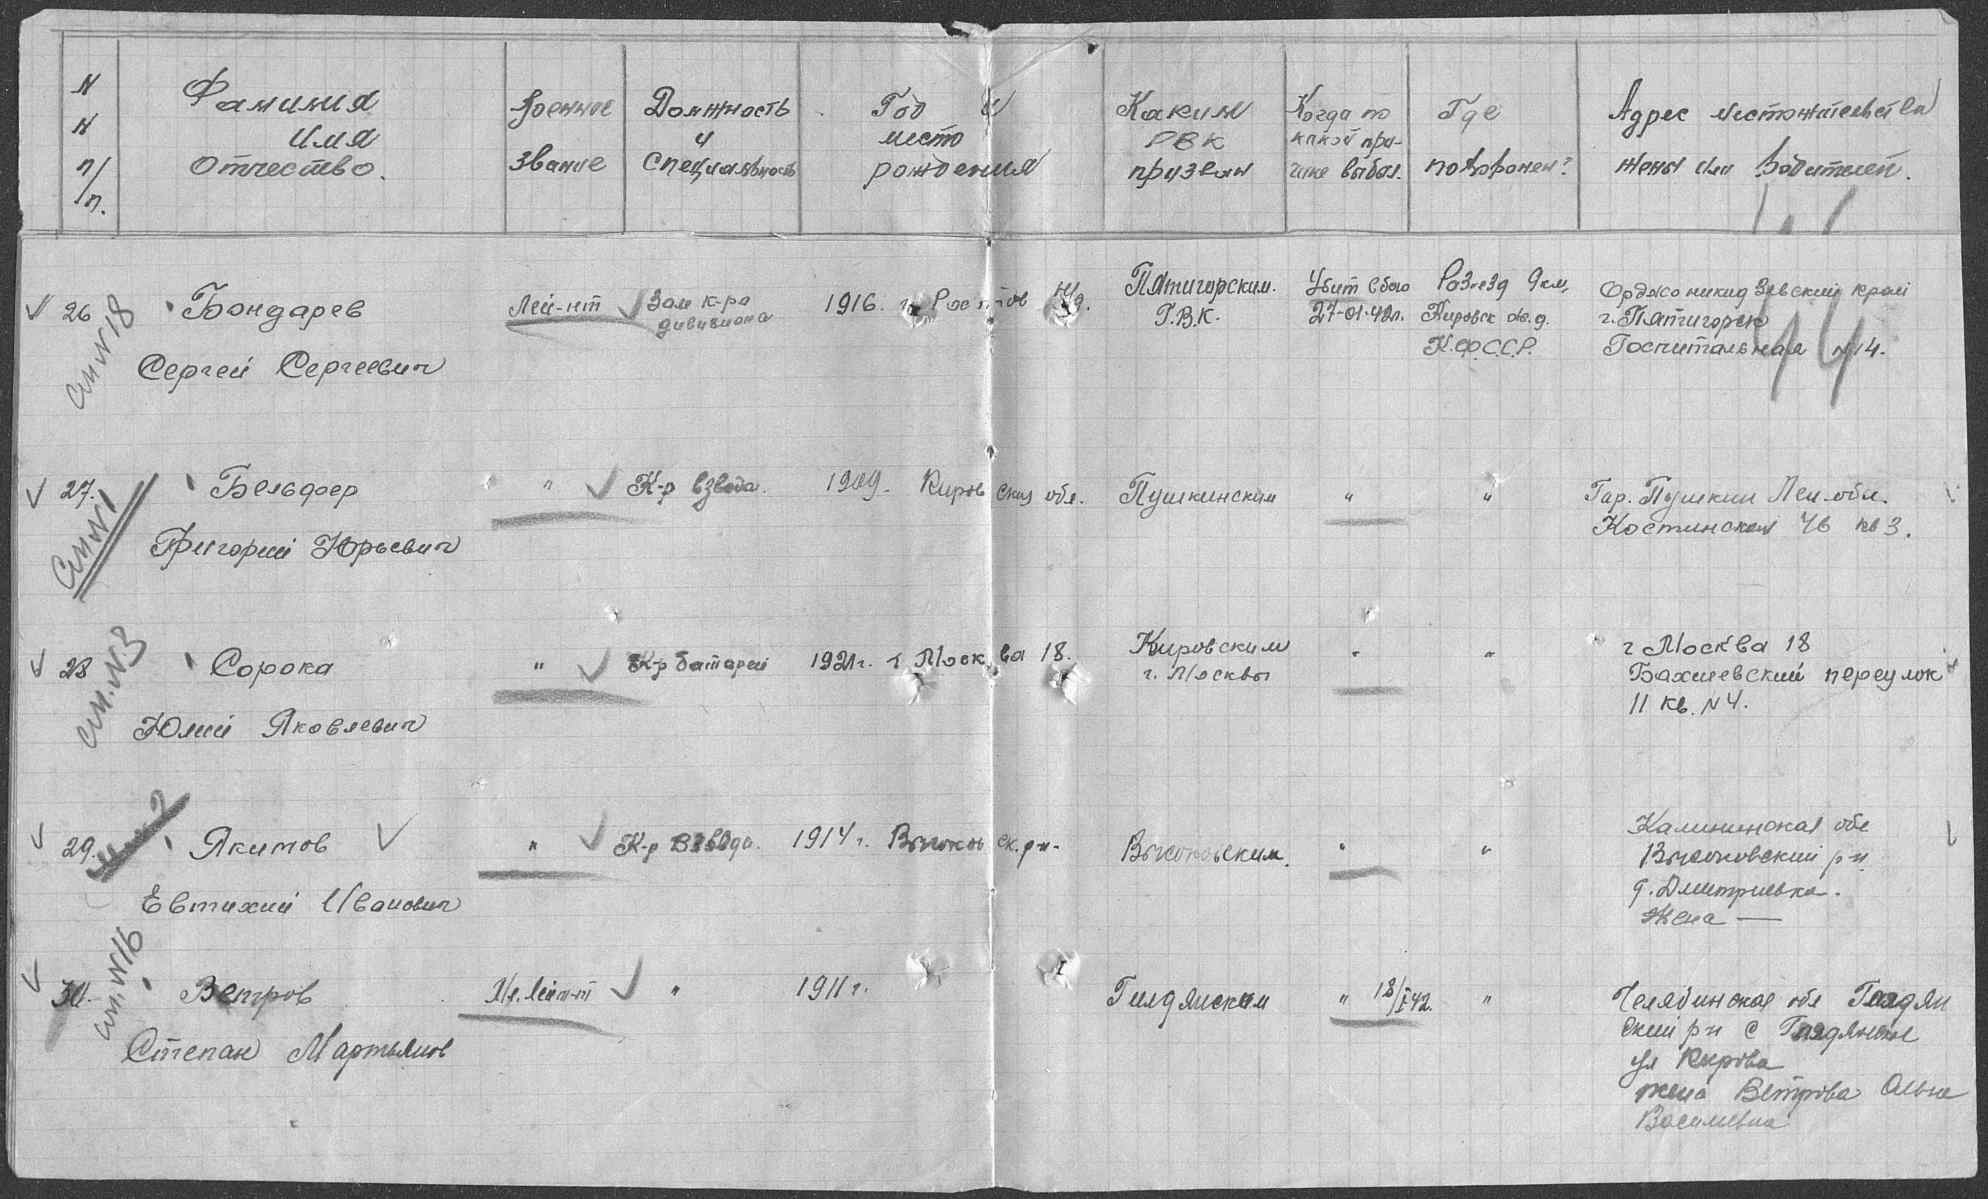 N N п/п.
Фамилия Имя Отчество.
Военное звание
Должность и специальность
Год и место рождения
Каким РВК призван
Когда по какой при-чине выбыл.
Где похоронен?
Адрес местожительства жены или родителей.
26 Бондарев
Сергей Сергеевич
см N18
Лей-нт
Зам к-ра
дивизиона
1916. г. Ростов н/д.
Пятигорским.
Г.В.К.
Убит в бою
27-01-42г.
Разъезд 9 км,
Кировск ж.д.
К.Ф.С.С.Р.
Орджоникидзевский край
г. Пятигорск
Госпитальная N 14.
14
27. Бельдфер
Григорий Юрьевич
см N1
" К-р взвода. 1909. Кировская обл. Пушкинским " "
Гор. Пушкин Лен. обл.
Костинская 46 кв 3.
28 Сорока
Юлий Яковлевич
см. N3
" К-р батареи 1921г. г Москва 18.
Кировским
г. Москвы
" "
г Москва 18
переулок
11 кв. N4.
29. Якимов
Евтихий Иванович
" К-р взвода. 1914 г. Высоковск. р-н. Высоковским. " "
Калининская обл
Высоковский р-н
д. Дмитриевка.
Жена —
30. Ветров
Степан Мартьянов
см. N16
Мл. Лейт-нт " 1911 г.
" 18/I 42. "
Челябинская обл
ский р-н с
ул Кирова
жена Ветрова
Васильевна